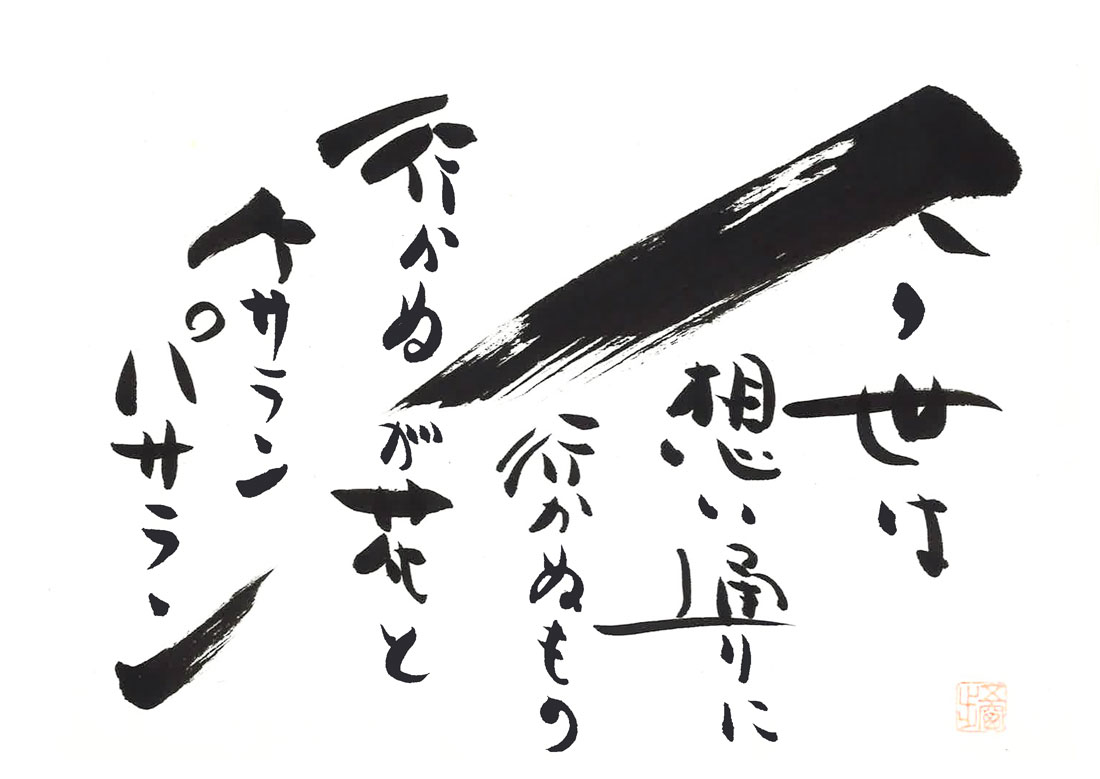 人の世は
想い通りに
行かぬもの
行かぬが花と
ケサラン
パサラン